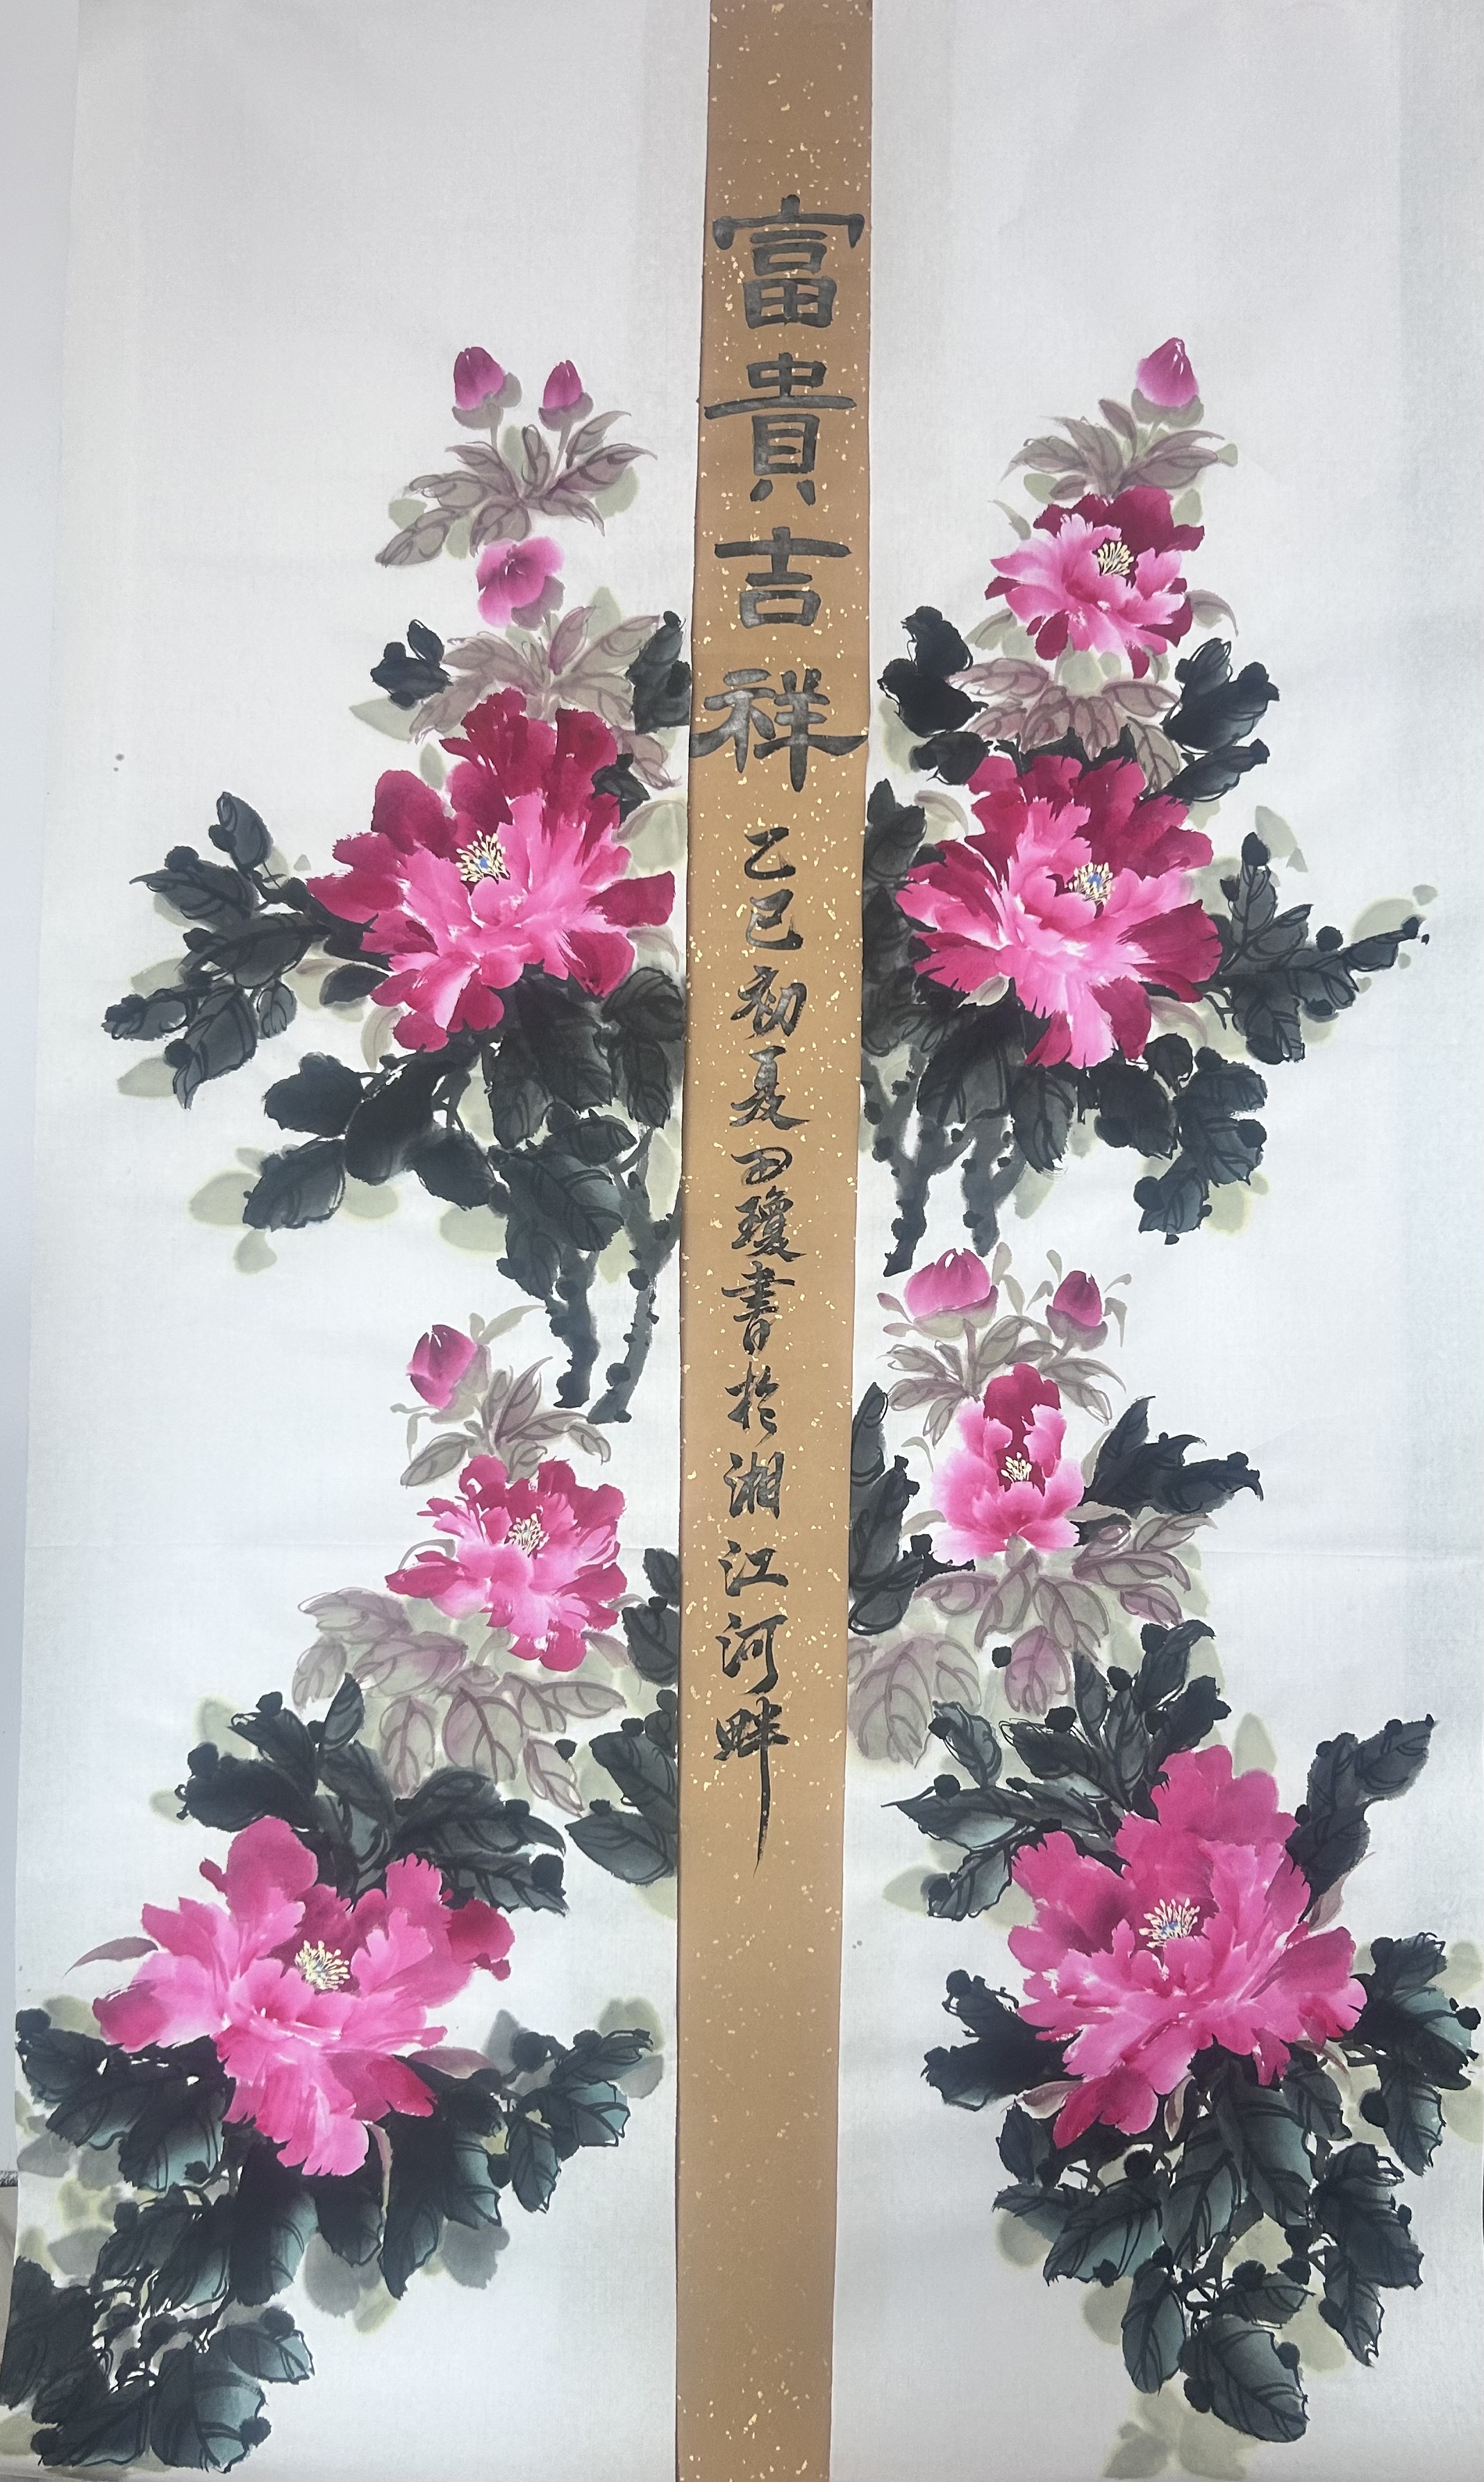 富貴吉祥 乙巳初夏田瓊書於湘江河畔